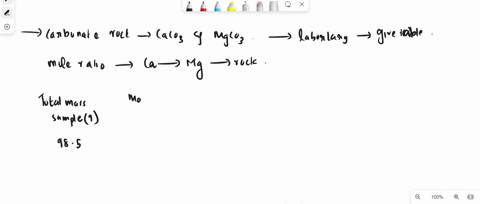 → carbonate rock → CaCO3 & MgCO3. → laboratory → give table.
mole ratio → Ca → Mg → rock.
Total mass Mo
sample(g)
98.5
100%